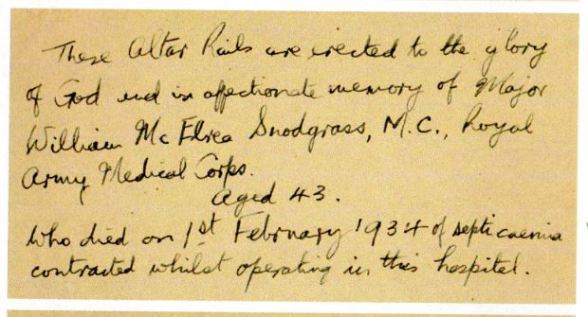 These Altar Rails are erected to the glory
of God and in affectionate memory of Major
William McElrea Snodgrass, M.C., Royal
Army Medical Corps.
aged 43.
Who died on 1st February 1934 of septicaemia
contracted whilst operating in this hospital.